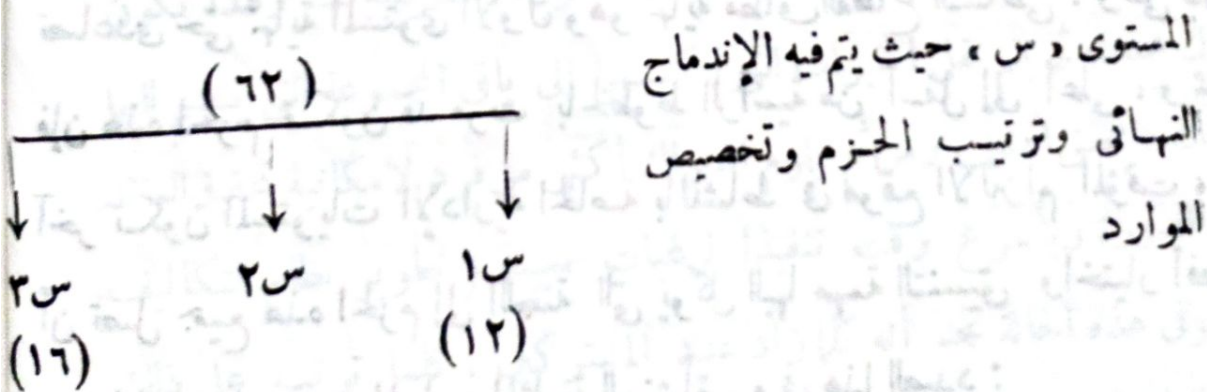 المستوى « س » حيث يتم فيه الإندماج
النهائى وترتيب الحزم وتخصيص
الموارد
( ٦٢ )
س١ س٢ س٣
(١٢) (١٦)